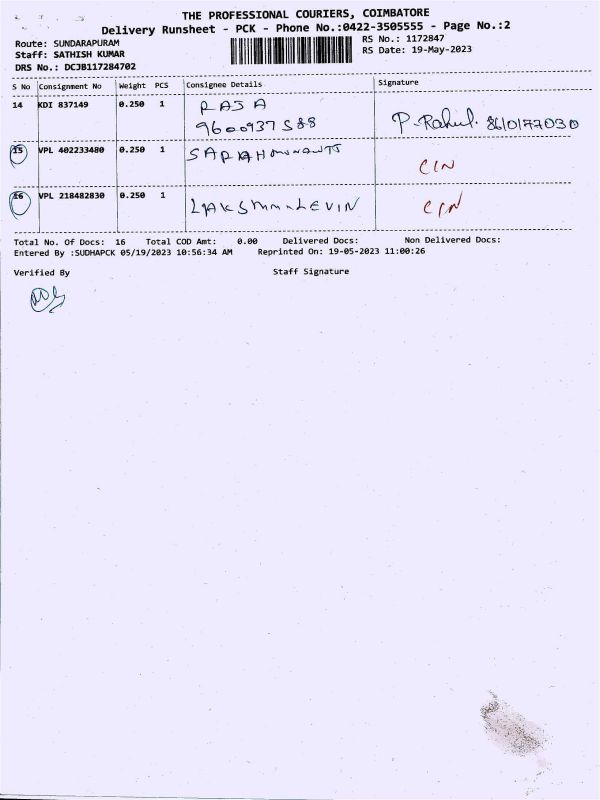 THE PROFESSIONAL COURIERS, COIMBATORE
Delivery Runsheet - PCK - Phone No.:0422-3505555 - Page No.:2
Route: SUNDARAPURAM
RS No.: 1172847
Staff: SATHISH KUMAR
RS Date: 19-May-2023
DRS No.: DCJB117284702
S No Consignment No Weight PCS Consignee Details Signature
14 KDI 837149 0.250 1 RAJA
9600937588 P. Rahul. 8610177030
15 VPL 402233480 0.250 1
CIN
16 VPL 218482830 0.250 1
CIN
Total No. Of Docs: 16 Total COD Amt: 0.00 Delivered Docs: Non Delivered Docs:
Entered By :SUDHAPCK 05/19/2023 10:56:34 AM Reprinted On: 19-05-2023 11:00:26
Verified By Staff Signature